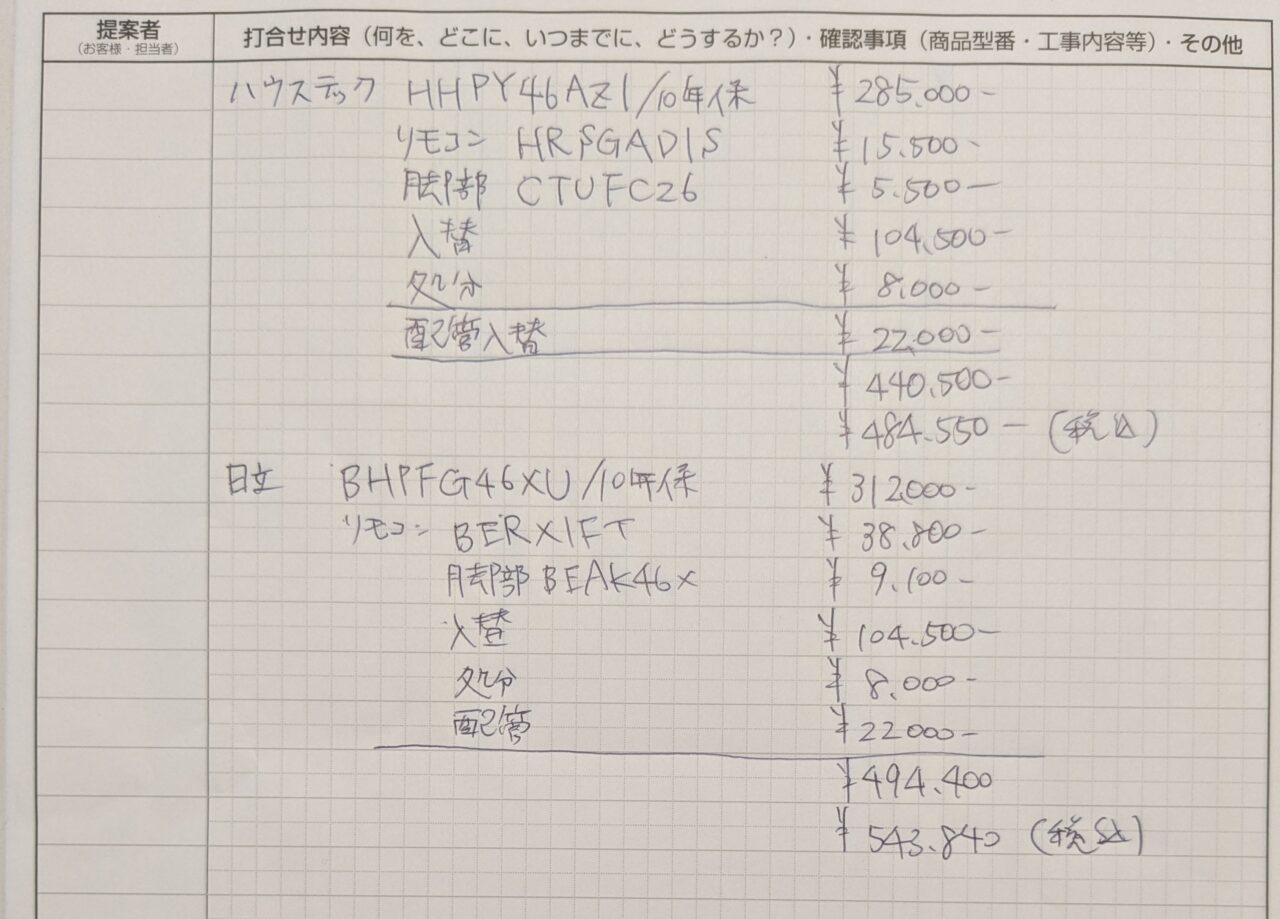 提案者
(お客様・担当者)
打合せ内容（何を、どこに、いつまでに、どうするか？）・確認事項（商品型番・工事内容等）・その他
ハウステック HHPY46AZ1/10年保 ¥285.000-
リモコン HRSGAD1S ¥15.500-
脚部 CTUFC26 ¥5.500-
入替 ¥104,500-
処分 ¥8.000-
配管入替 ¥22.000-
¥440.500-
¥484.550-(税込)
日立 BHPFG46XU/10年保 ¥312000-
リモコン BERX1FT ¥38.800-
脚部 BEAK46X ¥9.100-
入替 ¥104.500-
処分 ¥8.000-
配管 ¥22000-
¥494.400
¥543.840 (税込)